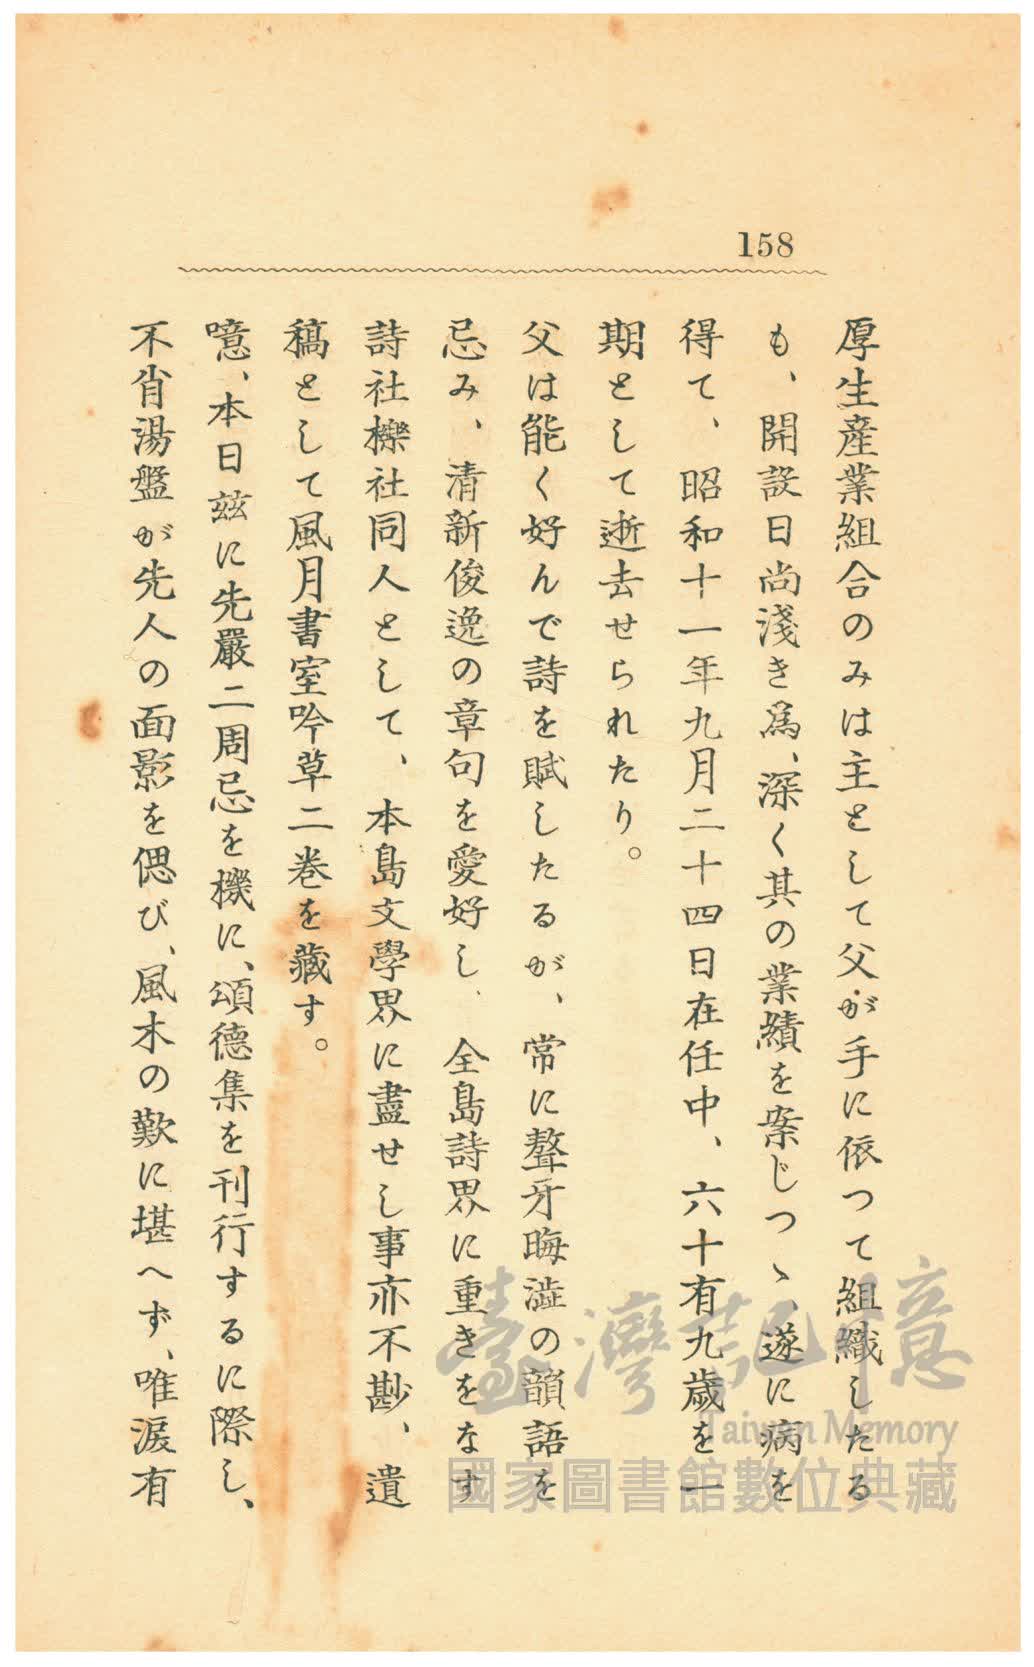 158
厚生産業組合のみは主として父が手に依つて組織したる
も、開設日尚淺き爲、深く其の業績を案じつゝ、遂に病を
得て、昭和十一年九月二十四日在任中、六十有九歳を一
期として逝去せられたり。
父は能く好んで詩を賦したるが、常に聱牙晦澁の韻語を
忌み、清新俊逸の章句を愛好し、全島詩界に重きをなす
詩社櫟社同人として、本島文學界に盡せし事亦不尠、遺
稿として風月書室吟草二巻を藏す。
噫、本日玆に先嚴二周忌を機に、頌德集を刊行するに際し、
不肖湯盤が先人の面影を偲び、風木の歎に堪へず、唯淚有
臺灣記憶
Taiwan Memory
國家圖書館數位典藏